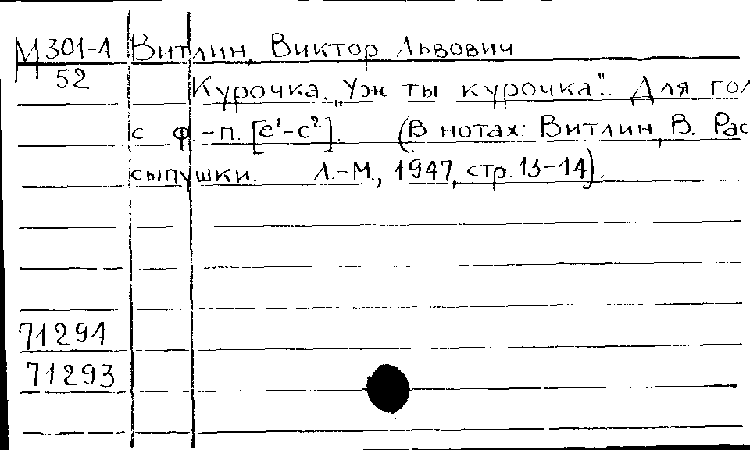 М 301-1 Витлин, Виктор Львович
52
Курочка. „Уж ты курочка". Для гол
с ф-п. [c¹-c²]. (В нотах: Витлин, В. Рас
сыпушки. Л.-М., 1947, стр. 13-14)
71291
71293